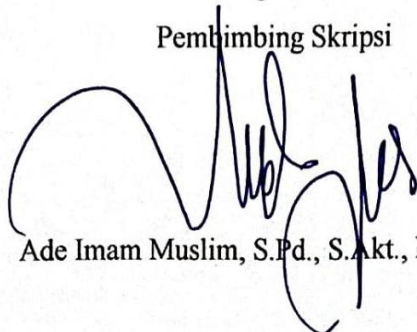 Pembimbing Skripsi
Ade Imam Muslim, S.Pd., S.Akt.,